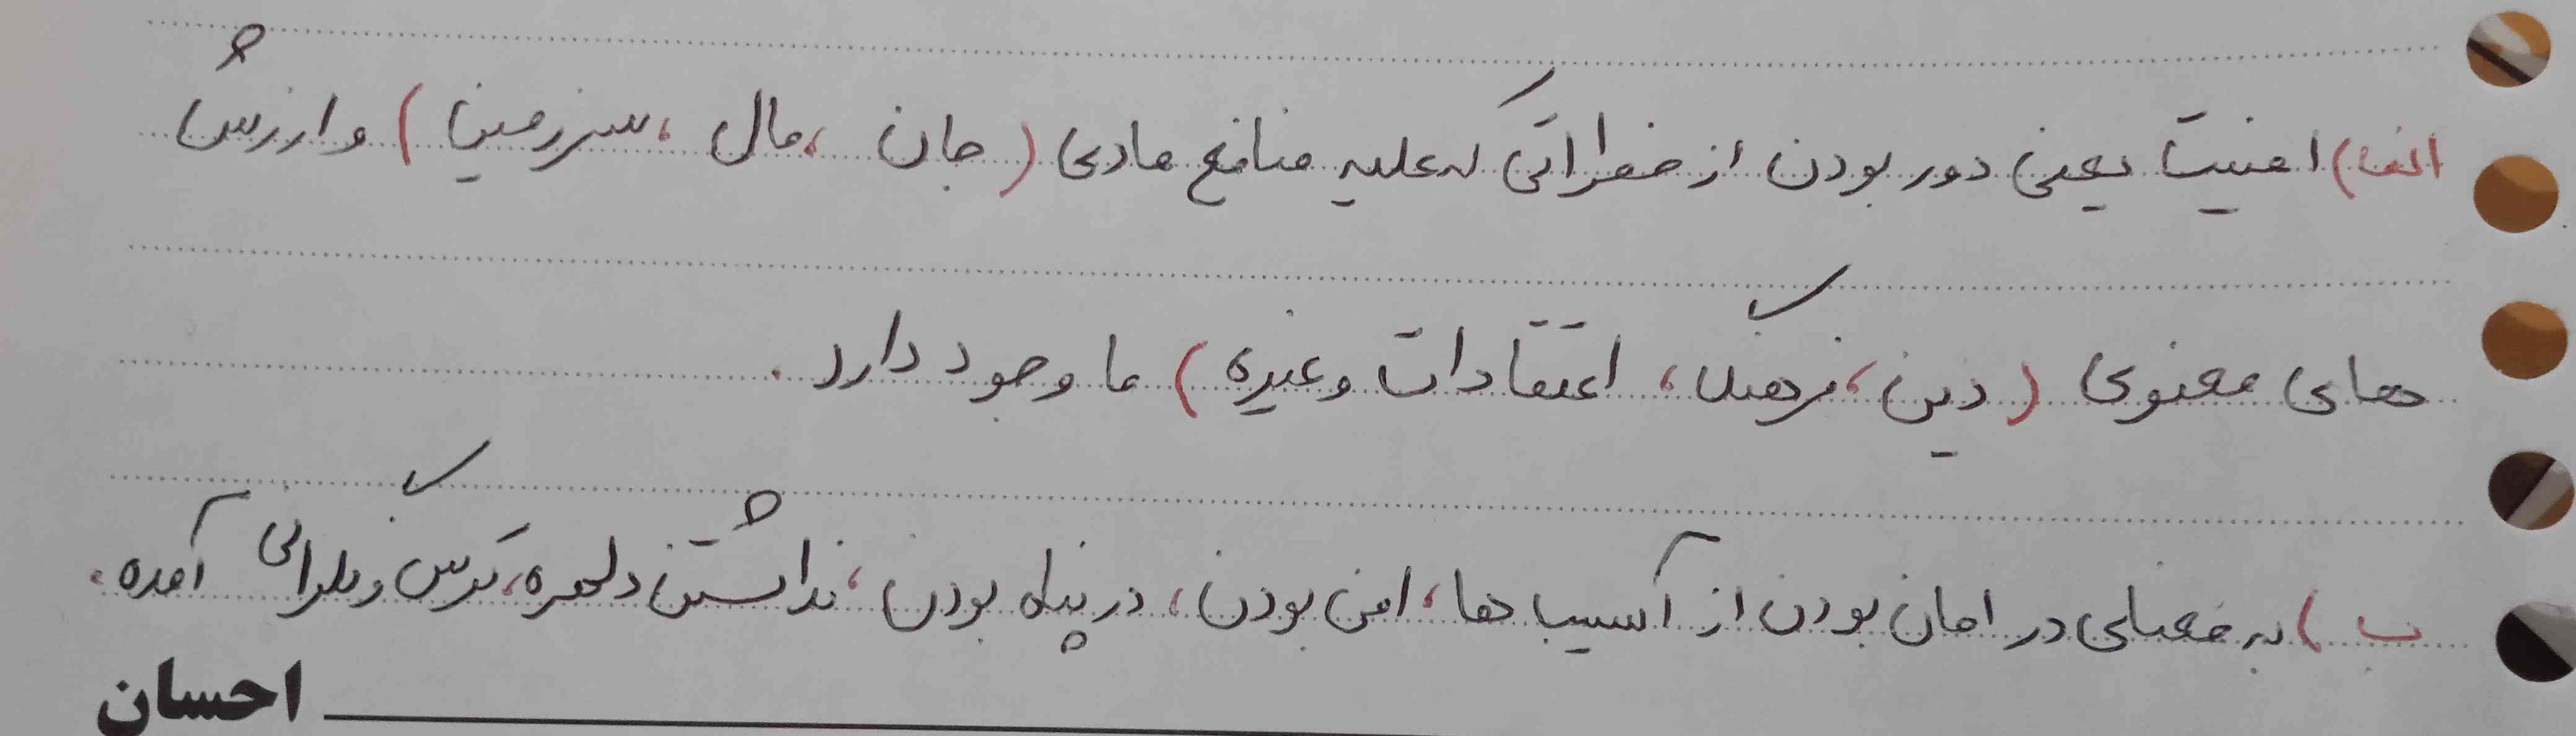 الف) امنیت یعنی دور بودن از خطراتی که علیه منافع مادی (جان، مال، سرزمین) و ارزش
های معنوی (دین، فرهنگ، اعتقادات و غیره) ما وجود دارد.
ب) به معنای در امان بودن از آسیب ها، امن بودن، در پناه بودن، نداشتن دلهره، ترس و نگرانی آمده.
احسان